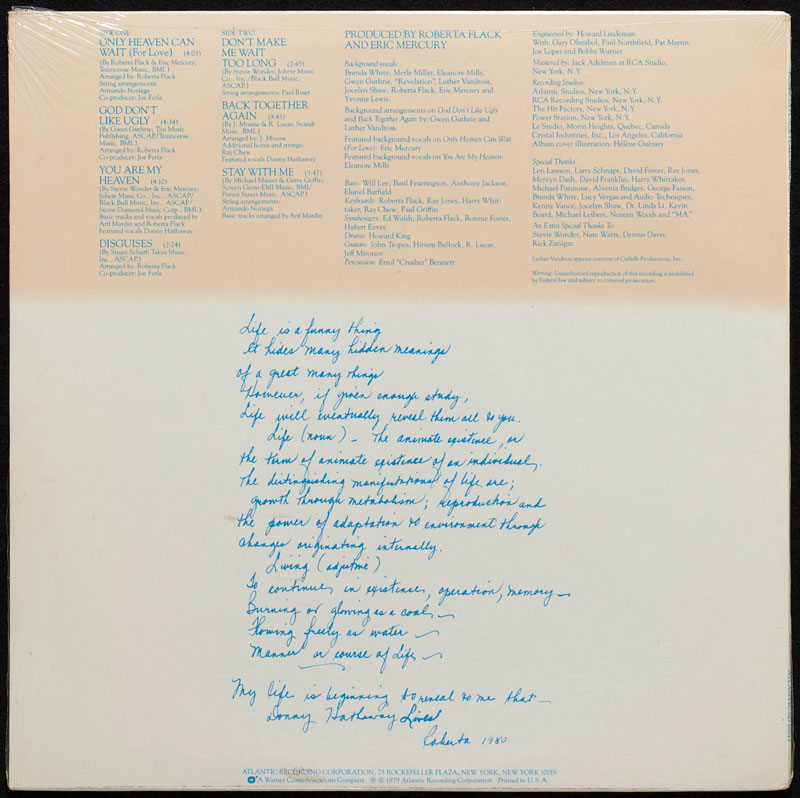 SIDE ONE
ONLY HEAVEN CAN
WAIT (For Love) (4:03)
(By Roberta Flack & Eric Mercury;
Teamcense Music, BMI.)
Arranged by: Roberta Flack
String arrangements:
Armando Noriega
Co-producer: Joe Ferla
GOD DON'T
LIKE UGLY (4:34)
(By Gwen Guthrie; Tou Music
Publishing, ASCAP/Teamcense
Music, BMI.)
Arranged by: Roberta Flack
Co-producer: Joe Ferla
YOU ARE MY
HEAVEN (4:10)
(By Stevie Wonder & Eric Mercury;
Jobete Music Co., Inc., ASCAP/
Black Bull Music, Inc., ASCAP/
Stone Diamond Music Corp., BMI.)
Basic tracks and vocals produced by
Arif Mardin and Roberta Flack
Featured vocal: Donny Hathaway
DISGUISES (2:24)
(By Stuart Scharf; Takya Music,
Inc., ASCAP.)
Arranged by: Roberta Flack
Co-producer: Joe Ferla
SIDE TWO
DON'T MAKE
ME WAIT
TOO LONG (7:45)
(By Stevie Wonder; Jobete Music
Co., Inc./Black Bull Music,
Inc., ASCAP.)
String arrangements: Paul Riser
BACK TOGETHER
AGAIN (9:45)
(By J. Mtume & R. Lucas; Scarab
Music, BMI.)
Arranged by: J. Mtume
Additional horns and strings:
Ray Chew
Featured vocal: Donny Hathaway
STAY WITH ME (3:47)
(By Michael Masser & Gerry Goffin;
Screen Gems-EMI Music, BMI/
Prince Street Music, ASCAP.)
String arrangements:
Armando Noriega
Basic tracks arranged by Arif Mardin
PRODUCED BY ROBERTA FLACK
AND ERIC MERCURY
Background vocals:
Brenda White, Merle Miller, Eleanore Mills,
Gwen Guthrie, "Revelation", Luther Vandross,
Jocelyn Shaw, Roberta Flack, Eric Mercury and
Yvonne Lewis.
Background arrangements on God Don't Like Ugly
and Back Together Again by: Gwen Guthrie and
Luther Vandross.
Featured background vocals on Only Heaven Can Wait
(For Love): Eric Mercury
Featured background vocals on You Are My Heaven:
Eleanory Mills
Bass: Will Lee, Basil Fearrington, Anthony Jackson,
Eluriel Barfield
Keyboards: Roberta Flack, Ray Jones, Harry Whit-
taker, Ray Chew, Paul Griffin
Synthesizers: Ed Walsh, Roberta Flack, Ronnie Foster,
Hubert Eaves
Drums: Howard King
Guitars: John Tropea, Hiriam Bullock, R. Lucas,
Jeff Mironov
Percussion: Errol "Crusher" Bennett
Engineered by: Howard Lindeman
With: Gary Olazabol, Paul Northfield, Pat Martin,
Joe Lopes and Bobby Warner
Mastered by: Jack Adelman at RCA Studio,
New York, N.Y.
Recording Studios:
Atlantic Studios, New York, N.Y.
RCA Recording Studios, New York, N.Y.
The Hit Factory, New York, N.Y.
Power Station, New York, N.Y.
Le Studio, Morin Heights, Quebec, Canada
Crystal Industries, Inc., Los Angeles, California
Album cover illustration: Hélène Guétary
Special Thanks:
Len Lawson, Larry Schnapf, David Foster, Ray Jones,
Mervyn Dash, David Franklin, Harry Whittaker,
Michael Pannone, Alvenia Bridges, George Faison,
Brenda White, Lucy Vergas and Audio Techniques,
Kenny Vance, Jocelyn Shaw, Dr. Linda Li, Kevin
Board, Michael Leibert, Noreen Woods and "MA."
An Extra Special Thanks To:
Stevie Wonder, Nate Watts, Dennis Davis,
Rick Zunigar.
Luther Vandross appears courtesy of Cotillion Productions, Inc.
Warning: Unauthorized reproduction of this recording is prohibited
by Federal law and subject to criminal prosecution.
Life is a funny thing
It hides many hidden meanings
of a great many things
However, if given enough study,
Life will eventually reveal them all to you.
Life (noun) – The animate existence, or
the term of animate existence of an individual.
The distinguishing manifestations of life are;
growth through metabolism; reproduction and
the power of adaptation to environment through
changes originating internally.
Living (adjective)
To continue, in existence, operation, memory –
Burning or glowing as a coal –
Flowing freely as water –
Manner or course of Life –
My life is beginning to reveal to me that –
Donny Hathaway Lives!
Roberta 1980
ATLANTIC RECORDING CORPORATION, 75 ROCKEFELLER PLAZA, NEW YORK, NEW YORK 10019
A Warner Communications Company ℗ © 1979 Atlantic Recording Corporation Printed in U.S.A.